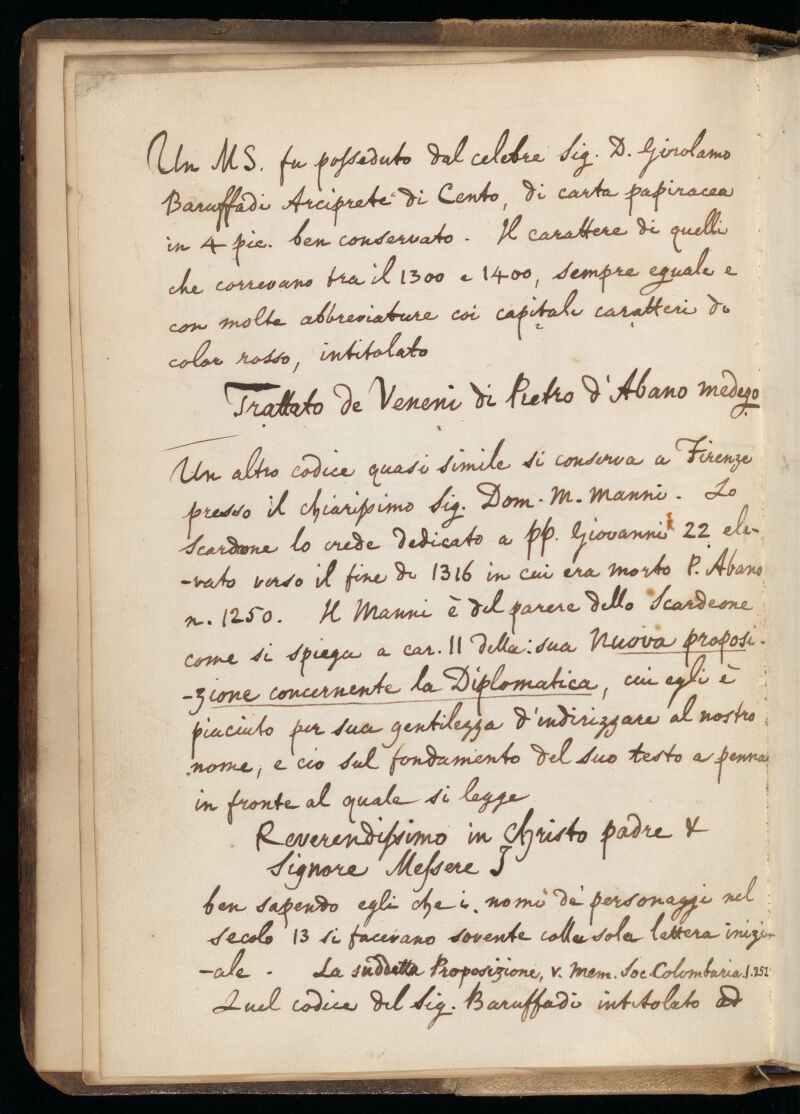 Un MS. fu posseduto dal celebre Sig. D. Girolamo
Baruffadi Arciprete di Cento, di carta papiracea
in 4 pic. ben conservato. Il carattere di quelli
che correvano tra il 1300 e 1400, sempre eguale e
con molte abbreviature coi capitali caratteri di
color rosso, intitolato
Trattato de Veneni di Pietro d'Abano medego
Un altro codice quasi simile si conserva a Firenze
presso il chiarissimo Sig. Dom. M. Manni. Lo
Scardone lo crede dedicato a pp. Giovanni 22 ele-
-vato verso il fine di 1316 in cui era morto P. Abano
n. 1250. Il Manni è del parere dello Scardeone
come si spiega a car. 11 della: sua Nuova proposi-
-zione concernente la Diplomatica, cui egli è
piaciuto per sua gentilezza d'indirizzare al nostro
nome, e ciò sul fondamento del suo testo a penna
in fronte al quale si legge
Reverendissimo in Christo padre &
Signore Messere J
ben sapendo egli che i nomi de' personaggi nel
secolo 13 si facevano sovente colla sola lettera inizi-
-ale. La suddetta Proposizione, v. Mem. Soc. Colombaria. 1. 252
Quel codice del Sig. Baruffadi intitolato ad